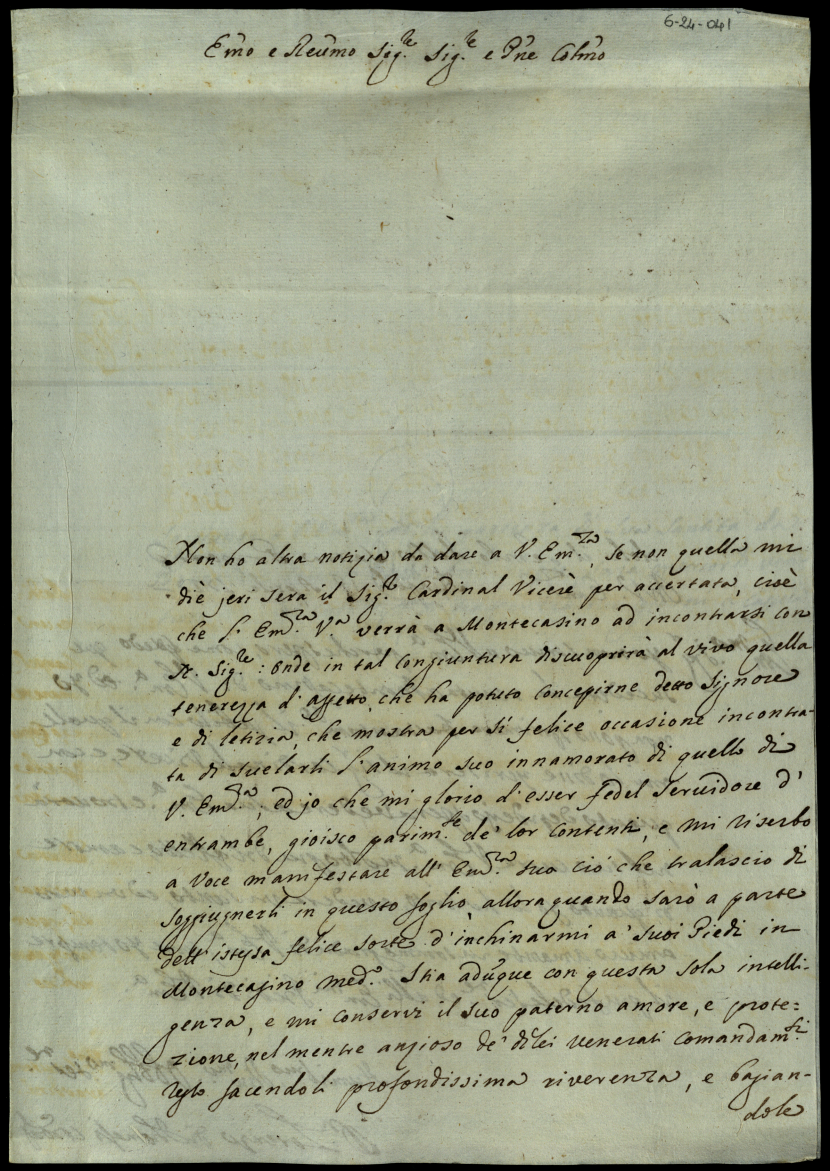 6-24-041
Em̃o e Reũmo Sig.re Sig.re e Pñe Colm̃o
Non ho altra notizia da dare a V. Em.za, se non quella mi
diè jeri sera il Sig.r Cardinal Vicerè per accertata, cioè
che l'Em.za V.a verrà a Montecasino ad incontrarsi con
N. Sig.re: onde in tal congiuntura discuoprirà al vivo quella
tenerezza d'affetto, che ha potuto concepirne detto Signore
e di letizia, che mostra per sì felice occasione incontra-
ta di suelarli l'animo suo innamorato di quello di
V. Em.za; ed jo che mi glorio d'esser fedel Seruidore d'
entrambe, gioisco parim.te de' lor contenti, e mi riserbo
a voce manifestare all'Em.za sua ciò che tralascio di
soggiugnerli in questo foglio allora quando sarò a parte
dell'istessa felice sorte d'inchinarmi a' suoi Piedi in
Montecasino med.o Stia adũque con questa sola intelli-
genza, e mi conservi il suo paterno amore, e prote=
zione, nel mentre ansioso de' di lei venerati comandam.ti
resto facendoli profondissima riverenza, e bagian-
dole